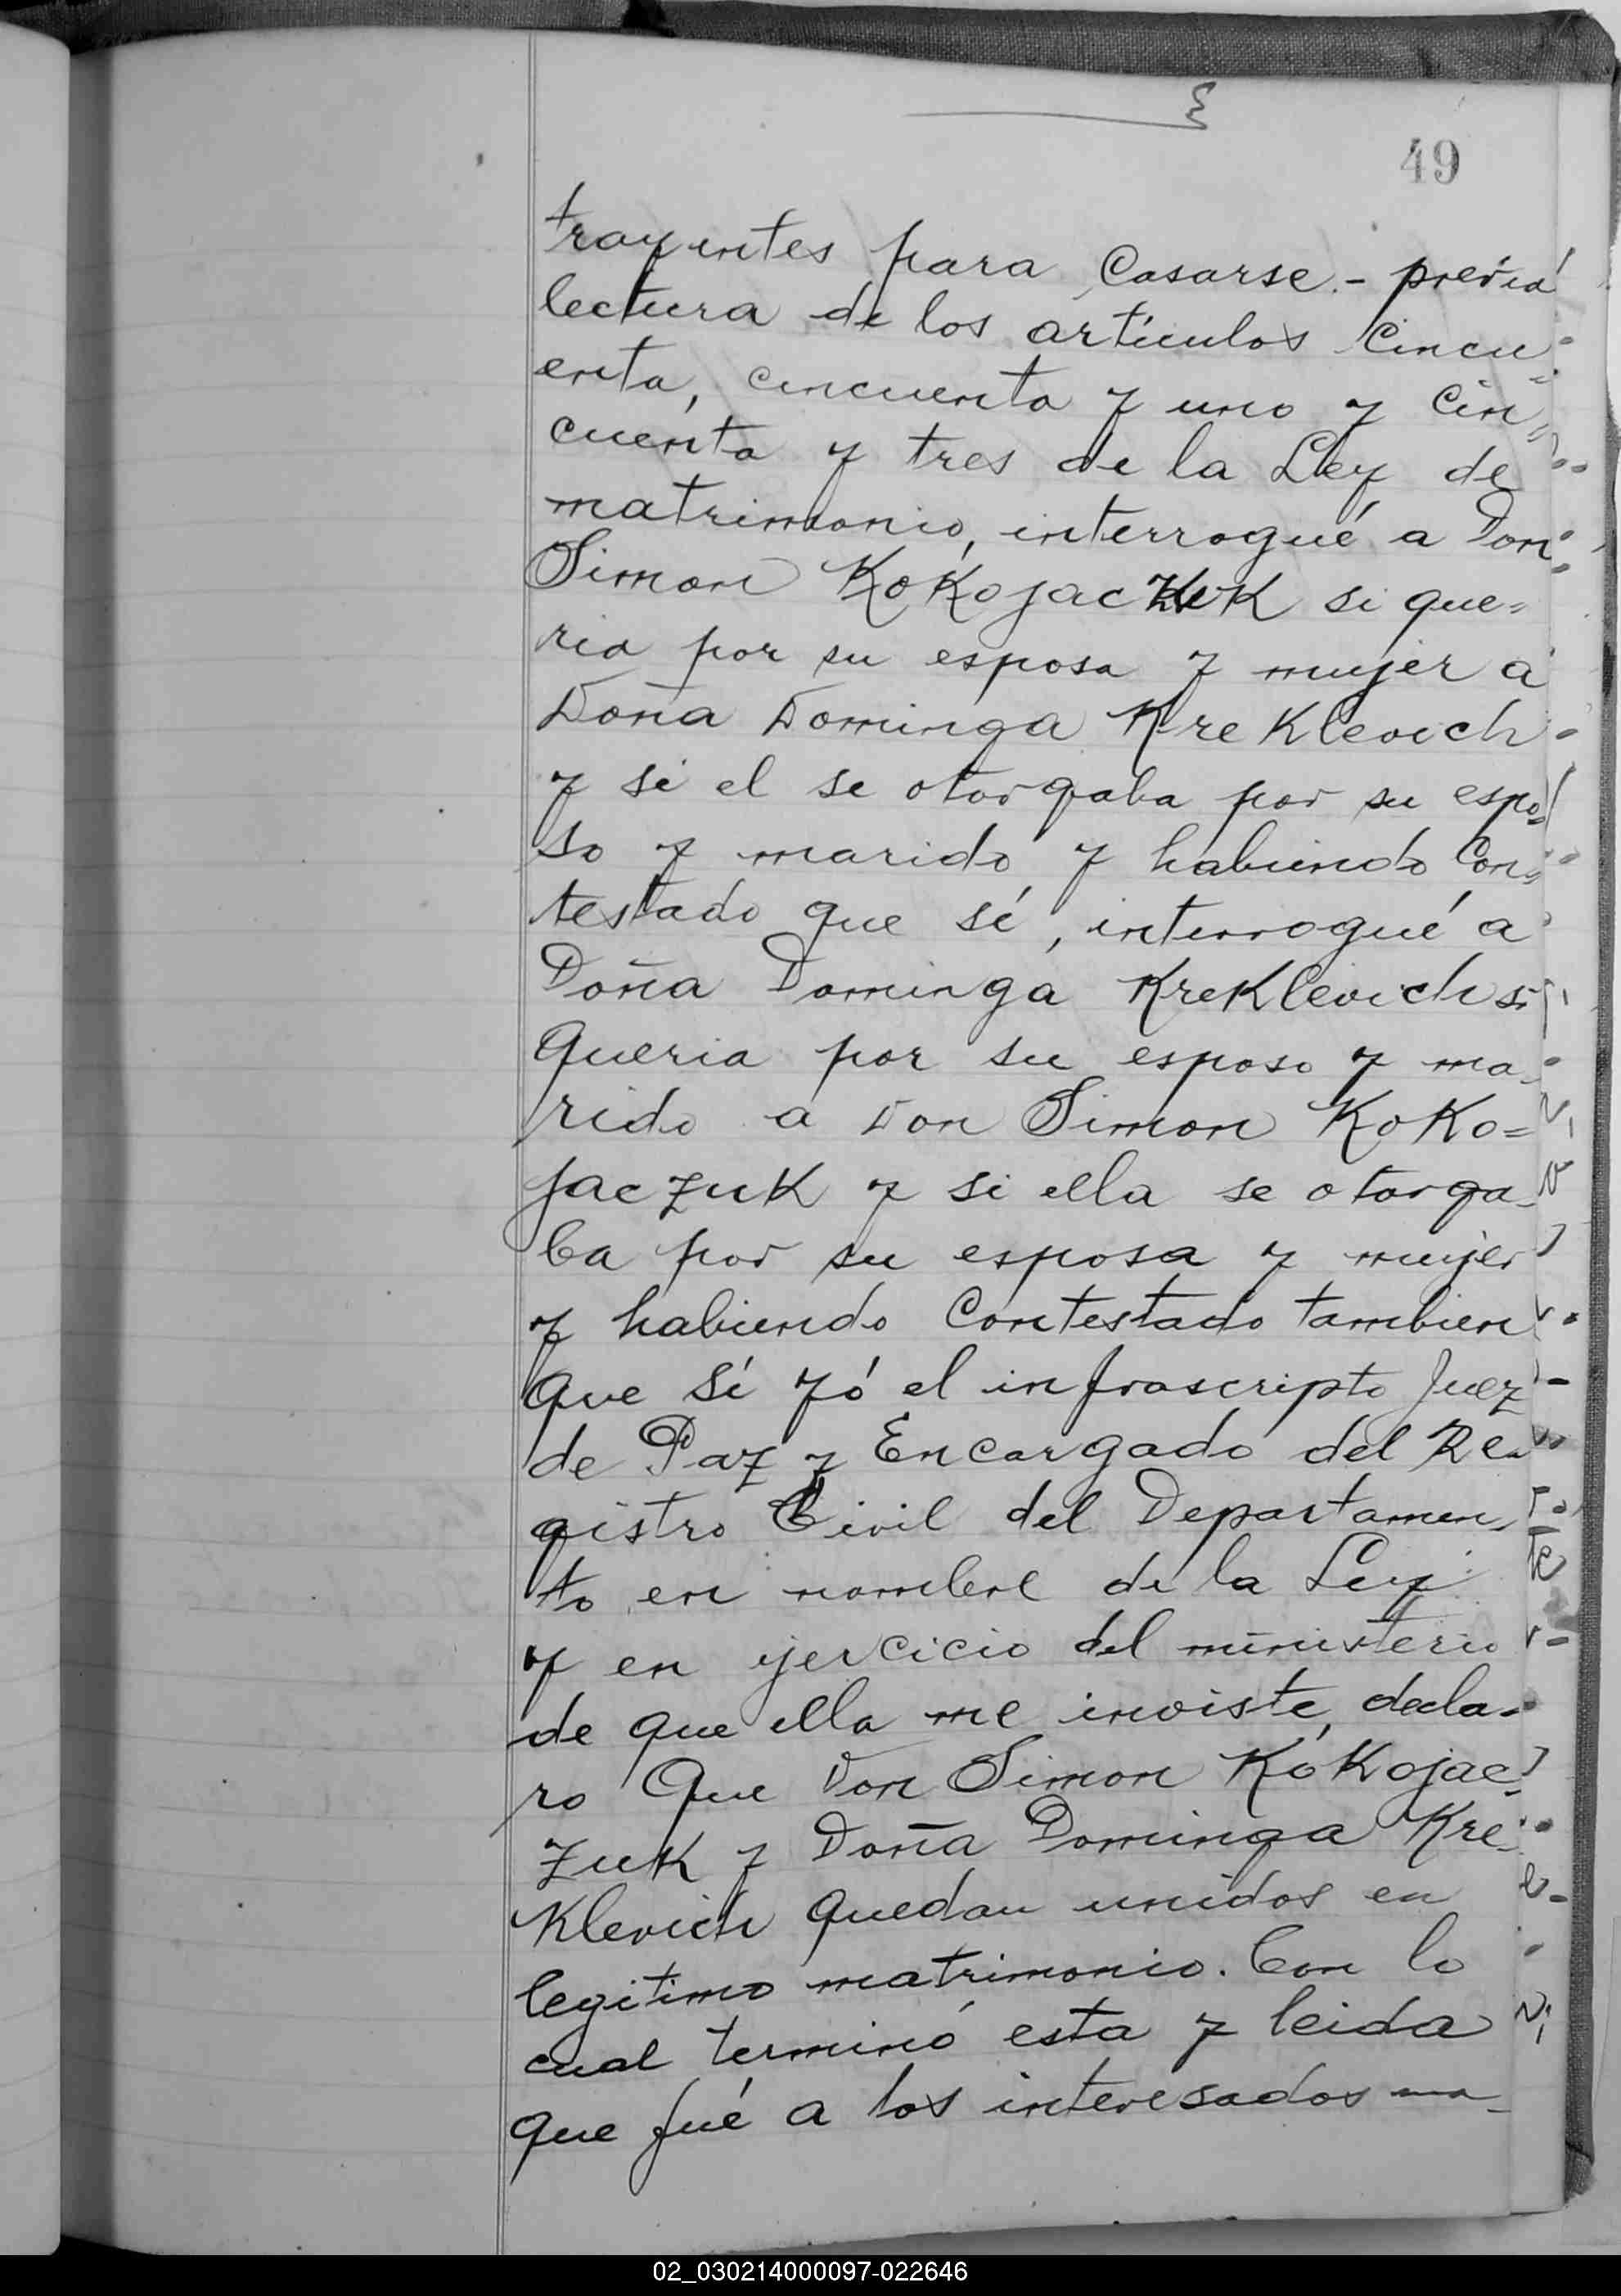 49
trayentes para Casarse.- previa
lectura de los artículos Cincu=
enta, cincuenta y uno y Cin=
cuenta y tres de la Ley de
matrimonio, interrogué a Don
Simon Kokojaczuk si que=
ria por su esposa y mujer a
Doña Dominga Kreklevich
y si el se otorgaba por su espo=
so y marido y habiendo Con=
testado que sí, interrogué a
Doña Dominga Kreklevich si
queria por su esposo y ma-
rido a Don Simon Koko=
jaczuk y si ella se otorga-
ba por su esposa y mujer
y habiendo Contestado tambien
que sí yó el infrascripto Juez
de Paz y Encargado del Re-
gistro Civil del Departamen-
to en nombre de la Ley
y en ejercicio del ministerio
de que ella me inviste, decla-
ro Que Don Simon Kokojac-
zuk y Doña Dominga Kre-
klevich quedan unidos en
legitimo matrimonio. Con lo
cual terminó esta y leida
que fué a los interesados ma-
02_030214000097-022646